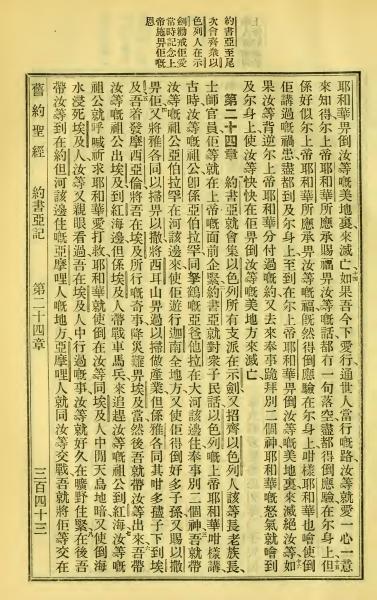 約書亞至尾
次會齊衆以
色列人在示
劍勸戒佢愛
當時記念上
帝施畀佢嘅
恩
耶和華畀倒汝等嘅美地裏來滅亡如果吾今下愛行通世人當行嘅路汝等就愛一心一意
來知得尔上帝耶和華所應承賜福畀汝等嘅話都冇一句落空盡都得倒應驗在尔身上但
係好似尔上帝耶和華所應承畀汝等嘅福旣然得倒應驗在尔身上咁樣耶和華也噲使倒
佢講過嘅禍患盡都到及尔身上至到在尔上帝耶和華畀倒汝等嘅美地裏來滅絕汝等如
果汝等背逆尔上帝耶和華分付過嘅約又去來奉事跪拜別二個神耶和華嘅怒氣就噲到
及尔身上使汝等快快在佢畀倒汝等嘅美地方來滅亡
第二十四章 約書亞就會集以色列所有支派在示劍又招齊以色列人該等長老族長
士師官員佢等就在上帝嘅面前企緊約書亞就對衆子民話以色列嘅上帝耶和華咁樣講
古時汝等嘅祖公卽係亞伯拉罕同拏鶴嘅亞爸他拉在大河該邊住奉事別二個神吾就帶
汝等嘅祖公亞伯拉罕在河該邊來使佢遊行迦南全地方又使佢得倒好多子孫又賜以撒
畀佢又將雅各同以掃畀以撒將西耳山畀過以掃做產業但係雅各同其咁多孻子下到埃
及吾着發摩西亞倫將吾在埃及所行嘅奇事降災難畀埃及當然後吾就帶汝等出來吾帶
汝等嘅祖公出埃及到紅海邊但係埃及人帶戰車馬兵來追趕汝等嘅祖公到紅海汝等嘅
祖公就呼喊祈求耶和華愛打救耶和華就使倒在汝等同埃及人中間天烏地暗又使倒海
水浸死埃及人汝等又親眼看過吾在埃及人中行過嘅事汝等就好久在曠野住緊在後吾
帶汝等到在約但河該邊住嘅亞摩哩人嘅地方亞摩哩人就同汝等交戰吾就將佢等交在
舊約聖經 約書亞記 第二十四章 三百四十三